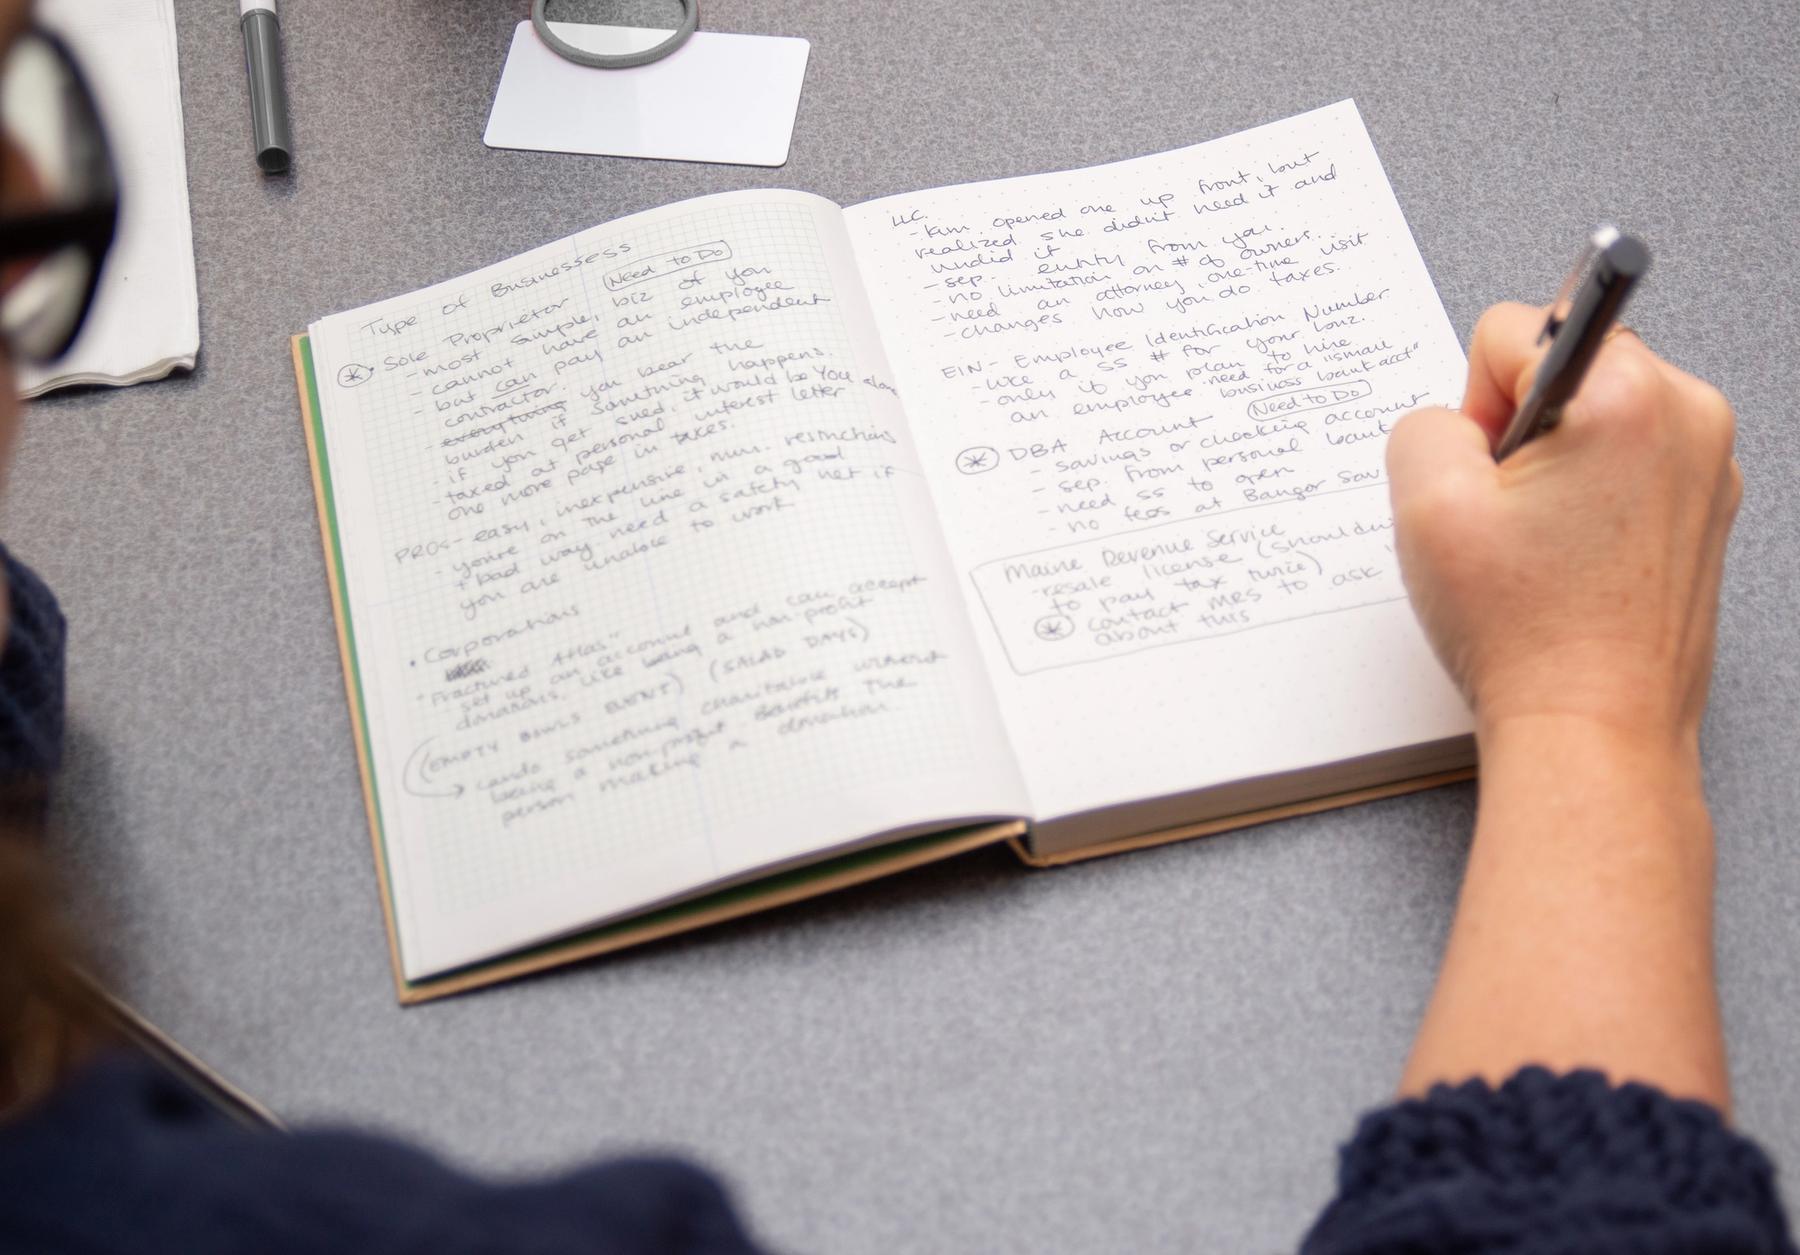 Type of Businessess
Sole Proprietor Need to Do
- most simple, biz of you
- cannot have an employee
- but can pay an independent
contractor.
- everything you bear the
burden if something happens.
- if you get sued, it would be You alone
- taxed at personal interest letter
one more page in taxes.
PROs - easy, inexpensive, min. restrictions
- you're on the line in a good
+ bad way need a safety net if
you are unable to work
• Corporations
"Fractured Atlas"
set up an account and can accept
donations, like being a non-profit
(EMPTY BOWLS EVENT) (SALAD DAYS)
can do something charitable without
being a non-profit Benefits the
person making a donation
LLC.
- Kim opened one up front, but
realized she didn't need it and
undid it
- sep. entity from you.
- no limitation on # of owners.
- need an attorney, one-time visit
- changes how you do taxes.
EIN - Employee Identification Number
- like a SS # for your biz.
- only if you plan to hire
an employee. need for a "small
business bank acct"
Need to Do
DBA Account
- savings or checking account
- sep. from personal bank
- need SS to open
- no fees at Bangor Sav
Maine Revenue Service
- resale license (shouldn't
to pay tax twice)
contact MRS to ask
about this